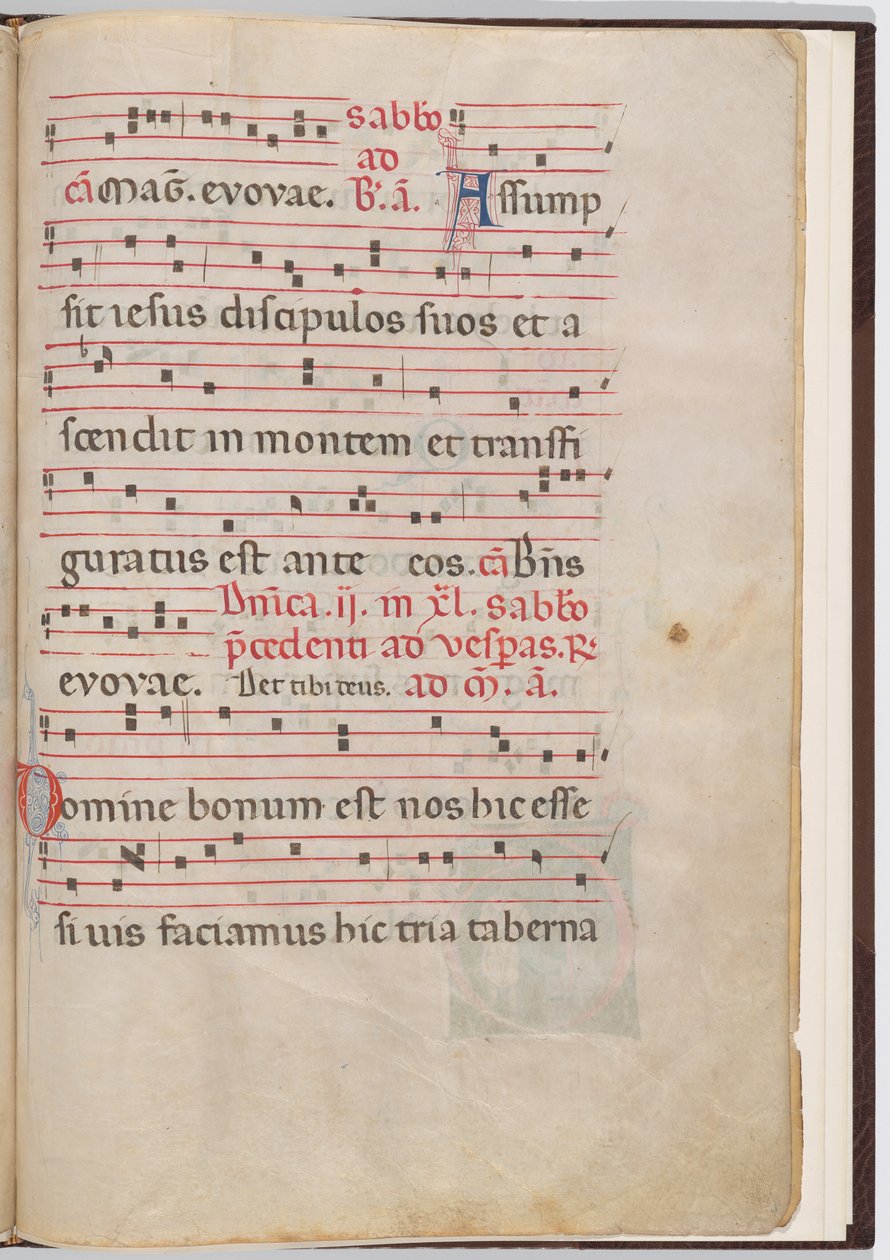 sabbo
ad
cā Mag. evovae. B. ā. Assump
sit iesus discipulos suos et a
scendit in montem et transfi
guratus est ante eos. cā Bn̄s
Dn̄ica. ij. in xl. sabbo
p̄cedenti ad vesperas. R
evovae. Det tibi deus. ad m̄. ā.
Domine bonum est nos hic esse
si uis faciamus hic tria taberna